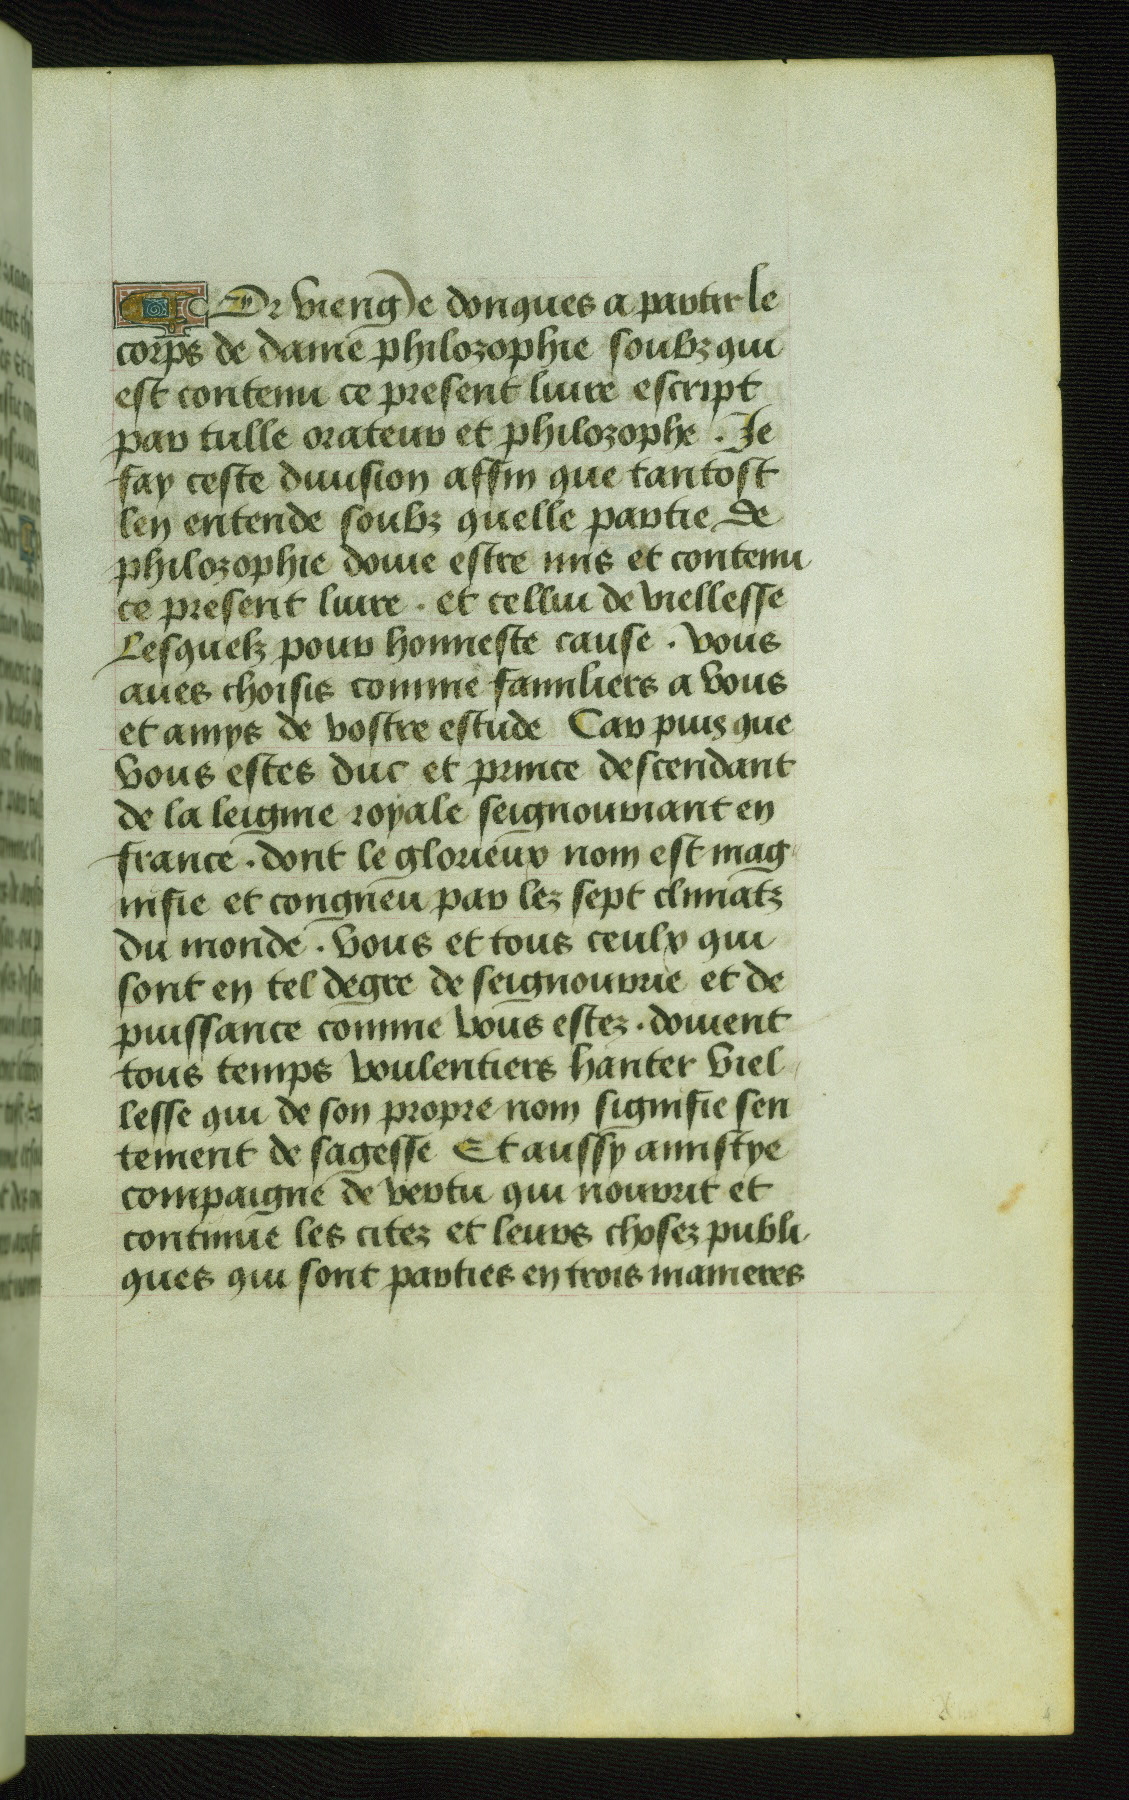 Or vieng Je donques a partir le
corps de dame philozophie soubz qui
est contenu ce present liure escript
par tulle orateur et philozophe . Je
fay ceste diuision affin que tantost
len entende soubz quelle partie de
philozophie doiue estre mis et contenu
ce present liure . et cellui de viellesse
Lesquelz pour honneste cause . vous
aues choisis comme familiers a vous
et amys de vostre estude Car puis que
vous estes duc et prince descendant
de la leigme royale seignouriant en
france . dont le glorieux nom est mag
nifie et congneu par lez sept climatz
du monde . vous et tous ceulx qui
sont en tel degre de seignourie et de
puissance comme vous estez . doiuent
tous temps voulentiers hanter viel
lesse qui de son propre nom signifie sen
tement de sagesse Et aussy amistye
compaigne de vertu qui nourrit et
continue les citez et leurs chosez publi
ques qui sont parties en trois manieres